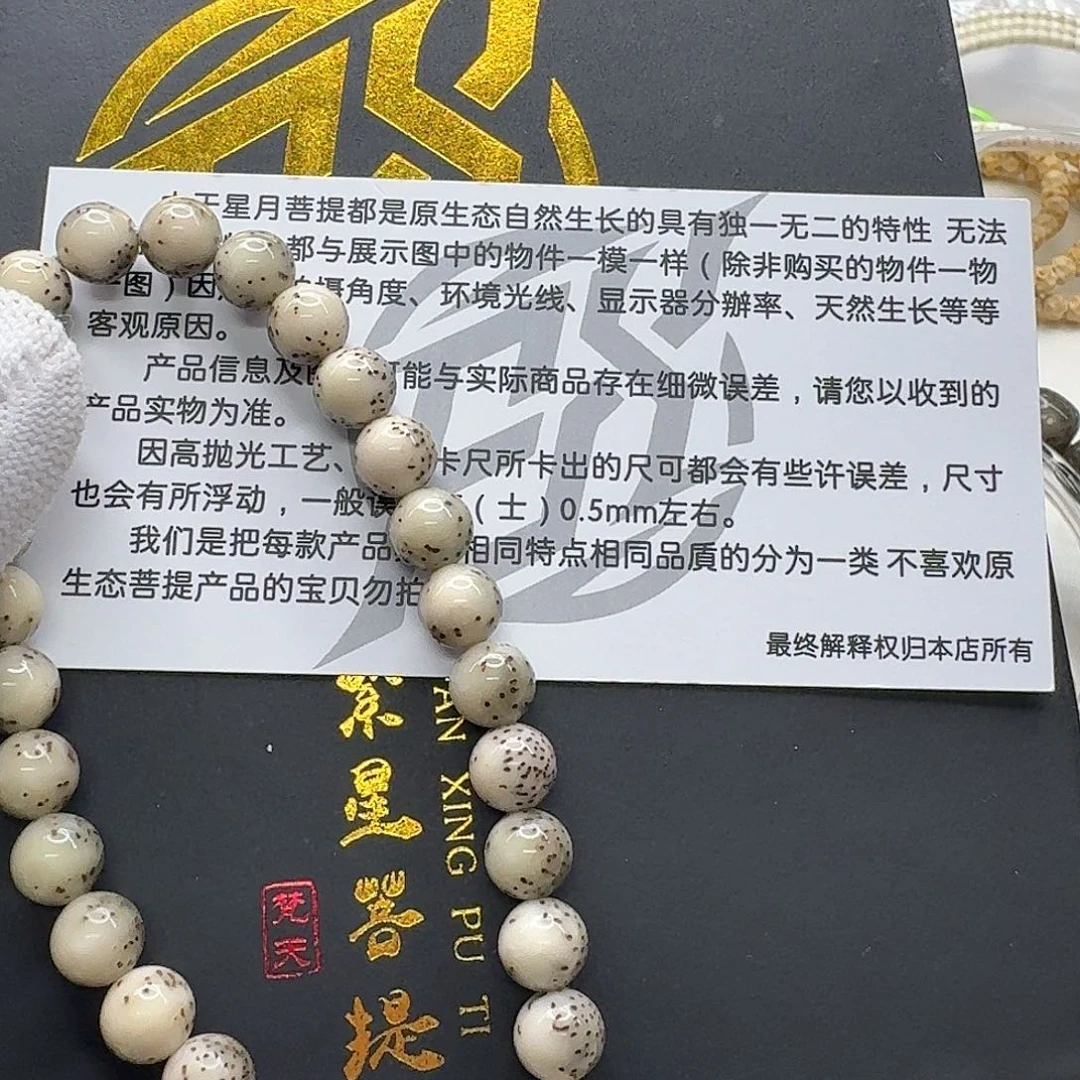 天星月菩提都是原生态自然生长的具有独一无二的特性 无法
都与展示图中的物件一模一样（除非购买的物件一物
一图）因 摄角度、环境光线、显示器分辦率、天然生长等等
客观原因。
产品信息及 可能与实际商品存在细微误差，请您以收到的
产品实物为准。
因高抛光工艺、 卡尺所卡出的尺可都会有些许误差，尺寸
也会有所浮动，一般误 （士）0.5mm左右。
我们是把每款产品 相同特点相同品質的分为一类 不喜欢原
生态菩提产品的宝贝勿拍
最终解释权归本店所有
繁星菩提
AN XING PU TI
梵天